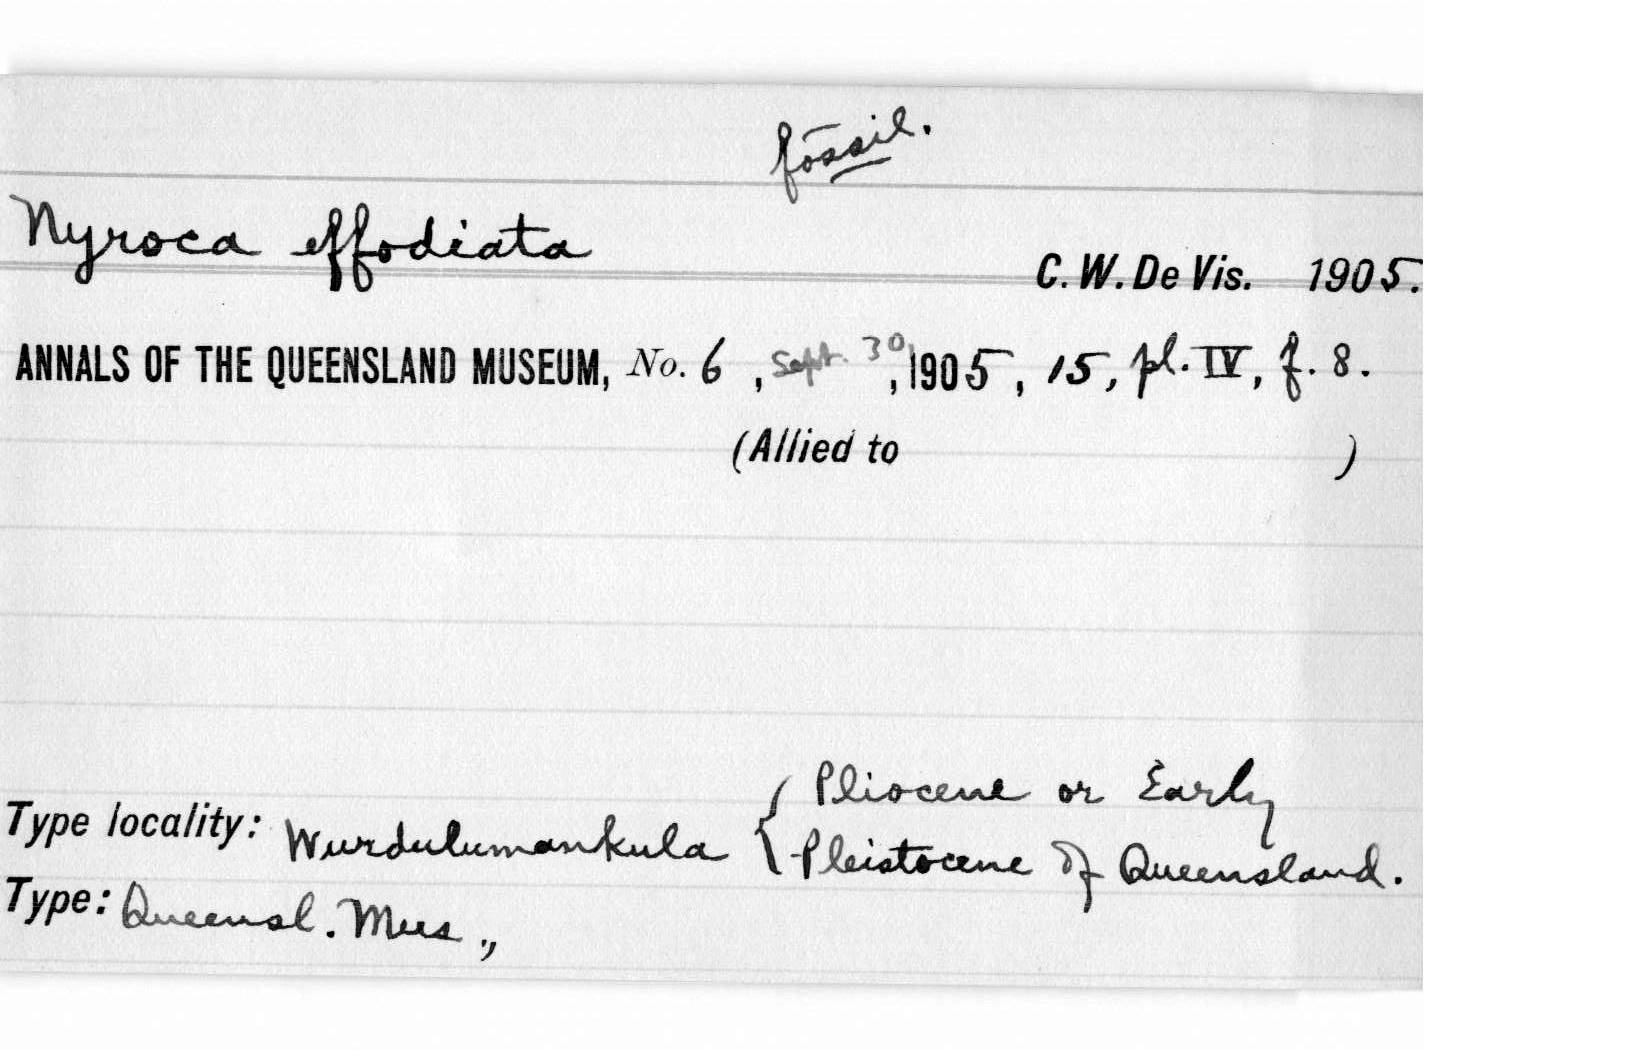 fossil.
Nyroca effodiata
C. W. De Vis. 1905.
ANNALS OF THE QUEENSLAND MUSEUM, No. 6 , Sept. 30, 1905, 15, pl. IV, f. 8.
(Allied to )
Type locality: Wurdulumankula { Pliocene or Early
Pleistocene of Queensland.
Type: Queensl. Mus.,